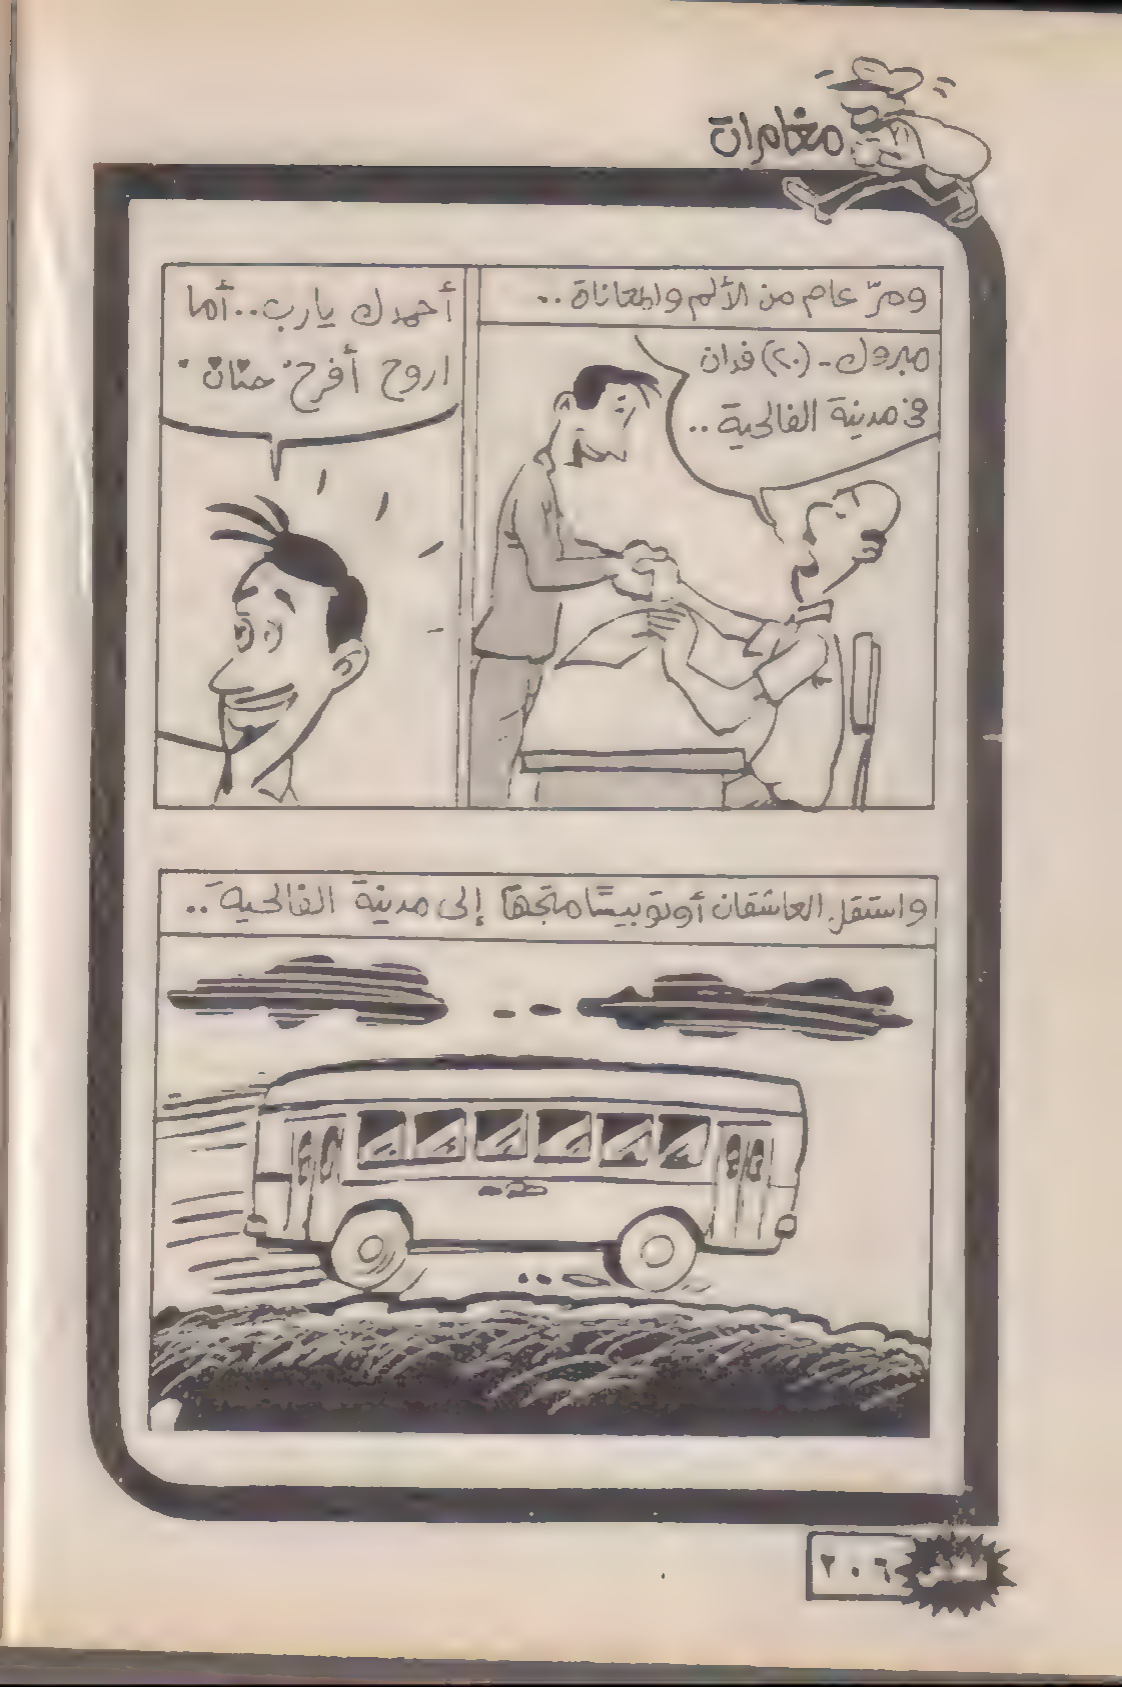 مغامرات
ومرّ عام من الألم والمعاناة ..
مبروك - (٢٠) فدان
فى مدينة الفالحية ..
أحمدك يارب .. أما
اروح أفرح "حنان"
واستقل العاشقان أوتوبيسًا متجهًا إلى مدينة الفالحية ..
٢٠٦